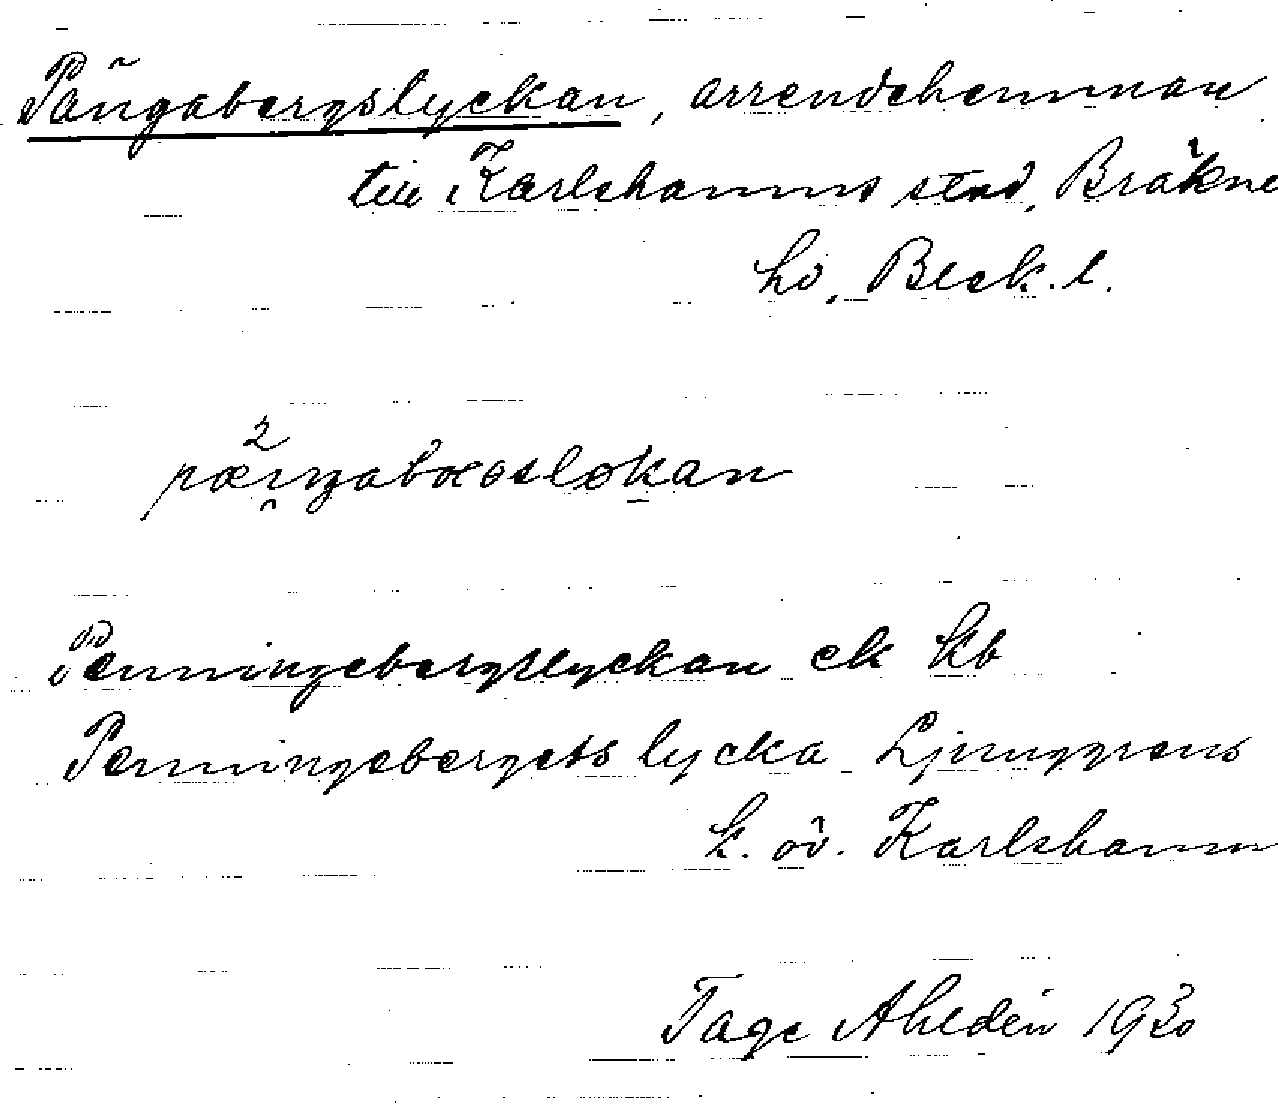 Pängabergslyckan, arrendehemman
till Karlshamns stad, Bräkne
hd, Blek. l.
Penningebergslyckan ek kb
Penningebergets lycka Ljunggrens
k. öv. Karlshamn
Tage Ahldén 1930